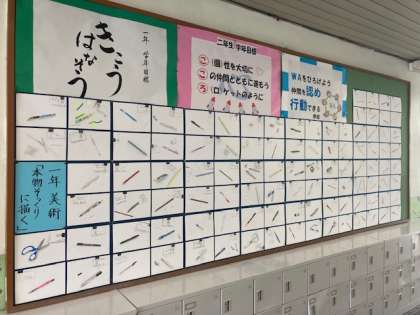 一年 学年目標
きこう
はなそう
二年生 学年目標
こ(個)性を大切に
こ の仲間とともに進もう
ろ(ロ)ケットのように
WAをひろげよう
仲間を認め
行動できる
学年
一年 美術
「本物そっくり
に描く」